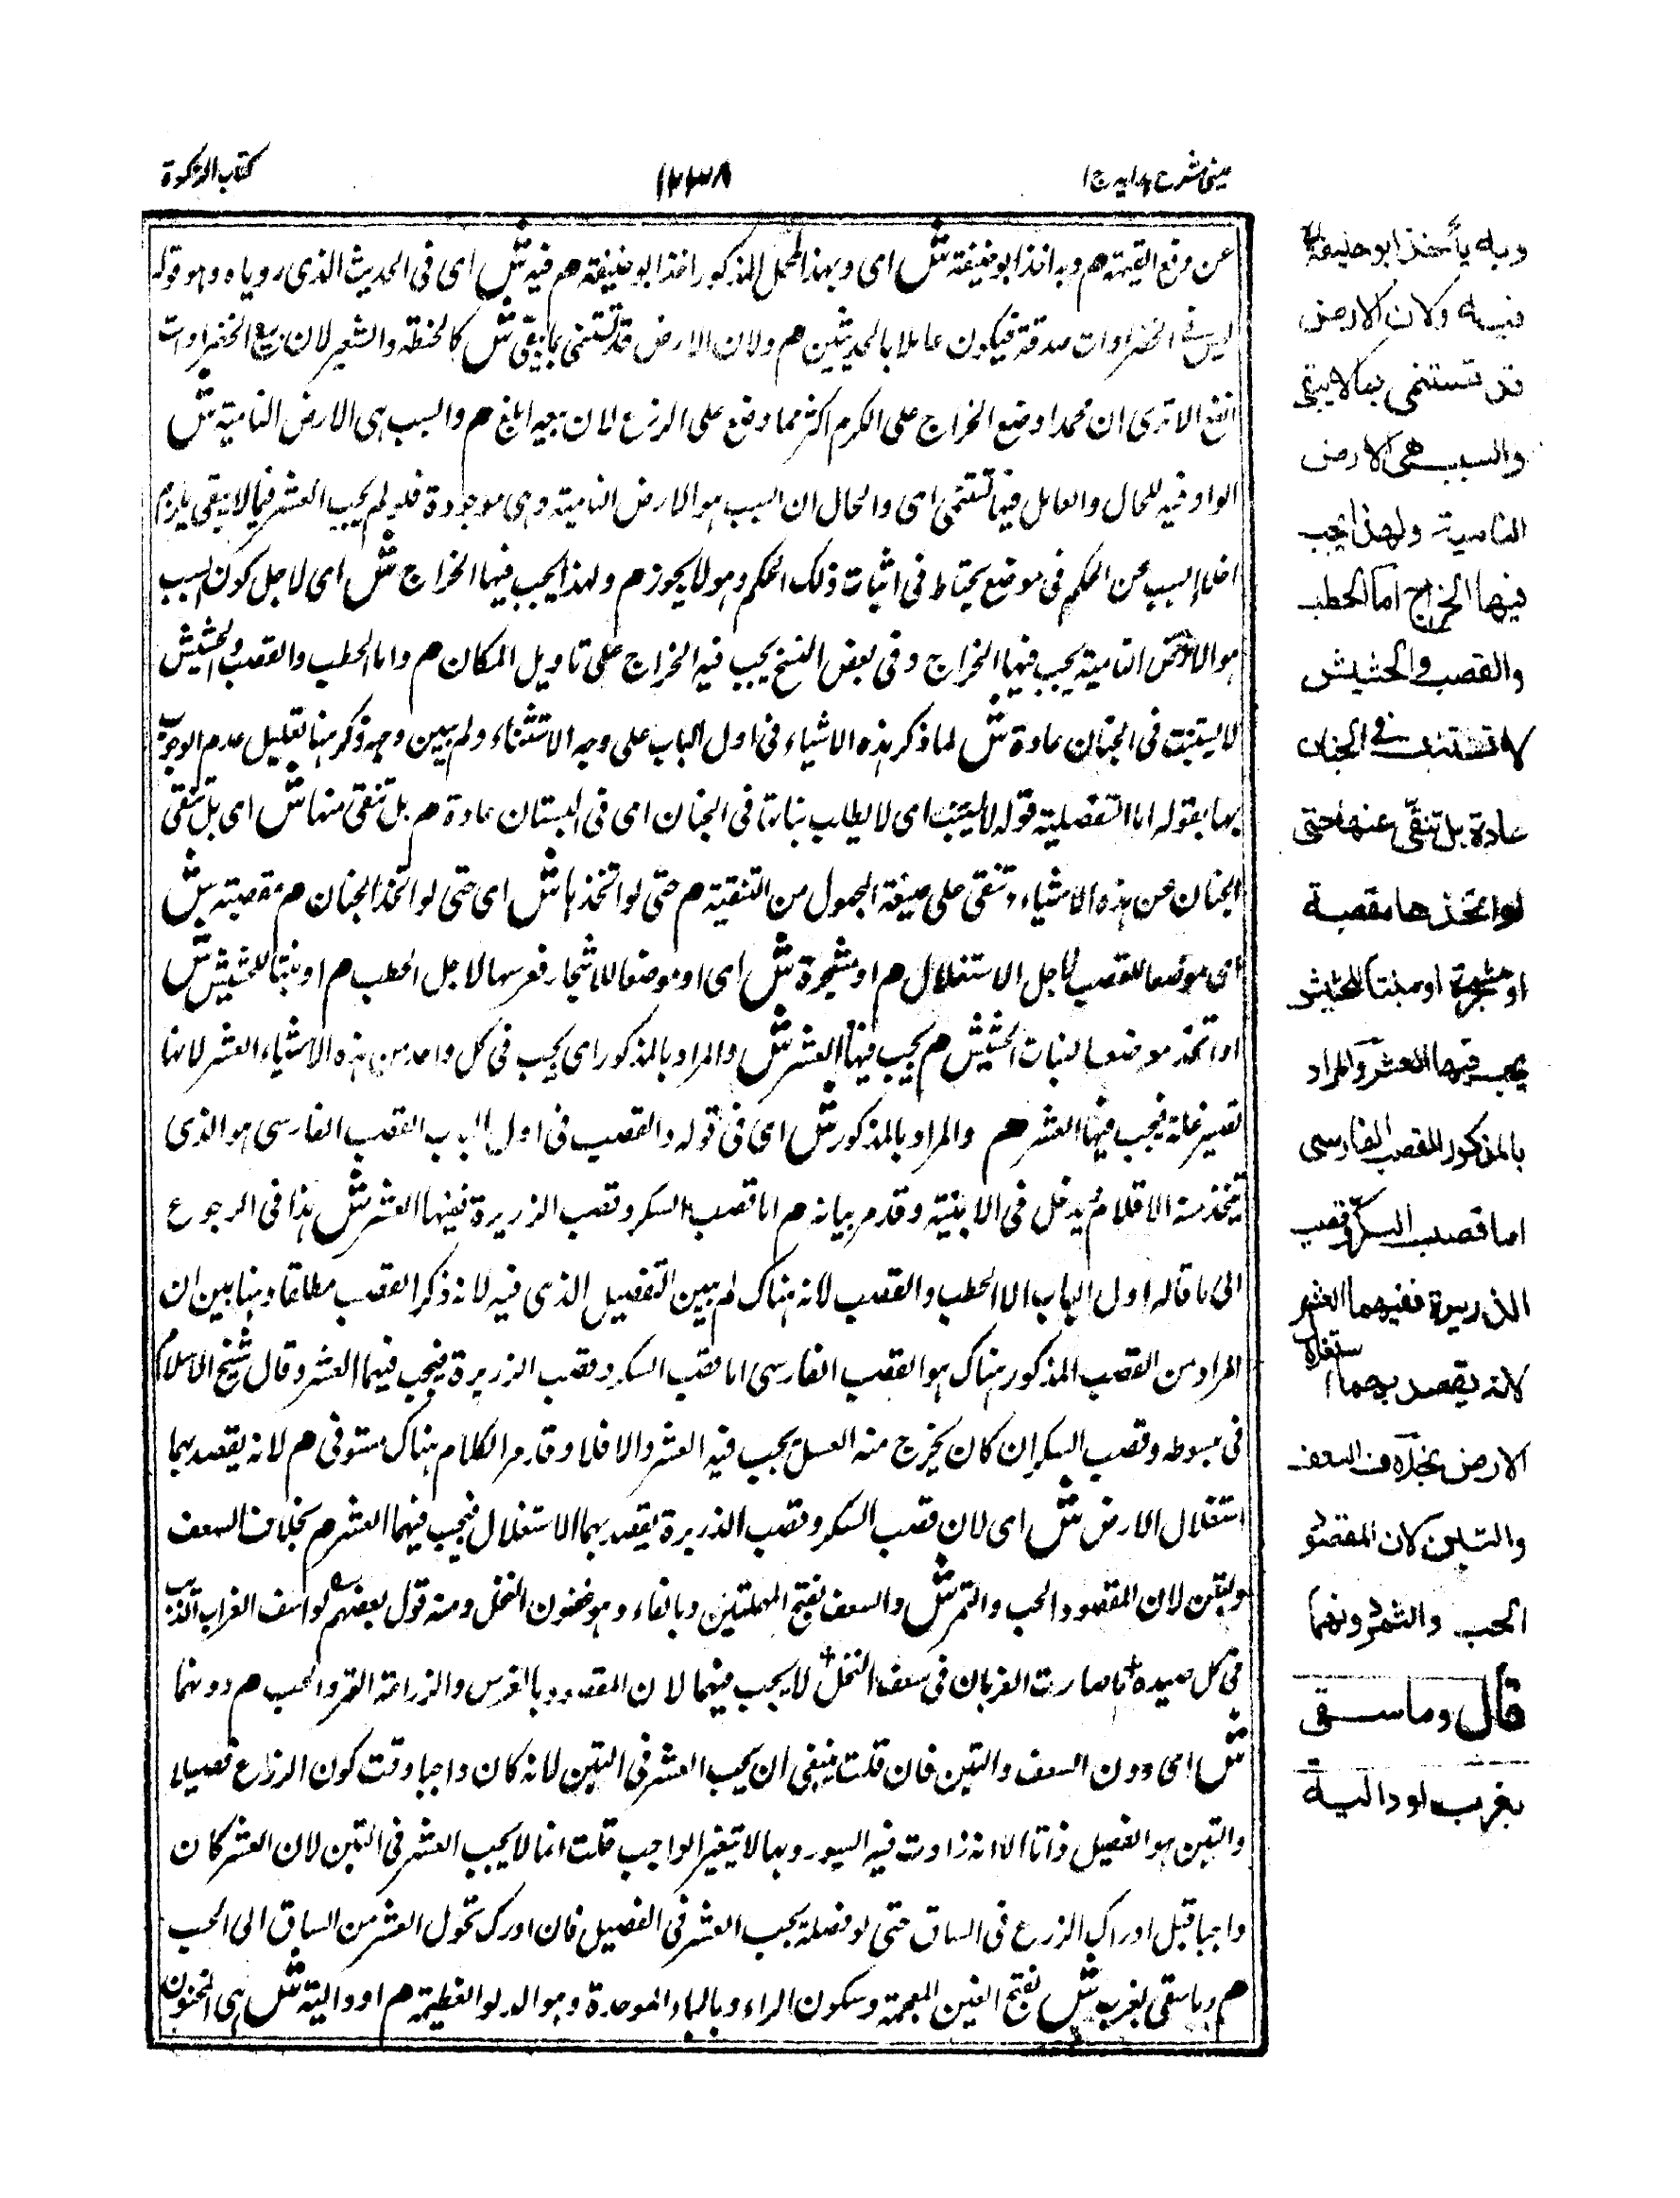 عینی شرح ہدایہ ج ۱
۱۲۳۸
کتاب الزکوة
عن دفع القیمة م وبه اخذ ابو حنیفة ش ای وبهذا المحمل المذکور اخذ ابو حنیفة م فیه ش ای فی الحدیث الذی رویاه وهو قوله
لیس فی الخضراوات صدقة فیکون عاملا بالحدیثین م ولان الارض قد تستنمی بما لا یبقی ش کالحنطة والشعیر لان ریع الخضراوات
انفع الا تری ان محمدا وضع الخراج علی الکرم اکثر مما وضع علی الزرع لان ریعه ابلغ م والسبب هی الارض النامیة ش
الواو فیه للحال والعامل فیها تستنمی ای والحال ان السبب هو الارض النامیة وهی موجودة فلو لم یجب العشر فیما لا یبقی یلزم
اخلاء السبب عن الحکم فی موضع یحتاط فی اثبات ذلک الحکم وهو لا یجوز م ولهذا یجب فیها الخراج ش ای لاجل کون السبب
هو الارض النامیة یجب فیها الخراج وفی بعض النسخ یجب فیه الخراج علی تاویل المکان م واما الحطب والقصب والحشیش
لا یستنبت فی الجنان عادة ش لما ذکر هذه الاشیاء فی اول الباب علی وجه الاستثناء ولم یبین وجهه ذکر هنا تعلیل عدم الوجوب
بها بقوله اما التفصیلیة قوله لا یستنبت ای لا یطلب نباتها فی الجنان ای فی البستان عادة م بل تنقی منها ش ای بل تنقی
الجنان عن هذه الاشیاء وتنقی علی صیغة المجهول من التنقیة م حتی لو اتخذها ش ای حتی لو اتخذ الجنان م مقصبة ش
ای موضعا للقصب لاجل الاستغلال م او مشجرة ش ای او موضعا للاشجار فغرسها لاجل الحطب م او منبتا للحشیش ش
او اتخذ موضعا لنبات الحشیش م یجب فیها العشر ش والمراد بالمذکور ای یجب فی کل واحد من هذه الاشیاء العشر لانها
تصیر غلة فیجب فیها العشر م والمراد بالمذکور ش ای فی قوله والقصب فی اول الباب القصب الفارسی هو الذی
یتخذ منه الاقلام یدخل فی الابنیة وقد مر بیانه م اما قصب السکر وقصب الزریرة ففیها العشر ش هذا فی الرجوع
الی ما قاله اول الباب الا الحطب والقصب لانه هناک لم یبین التفصیل الذی فیه لانه ذکر القصب مطلقا وهنا بین ان
المراد من القصب المذکور هناک هو القصب الفارسی اما قصب السکر وقصب الزریرة فیجب فیهما العشر وقال شیخ الاسلام
فی مبسوطه وقصب السکر ان کان یخرج منه العسل یجب فیه العشر والا فلا وقد مر الکلام هناک مستوفی م لانه یقصد بهما
استغلال الارض ش ای لان قصب السکر وقصب الذریرة یقصد بهما الاستغلال فیجب فیهما العشر م بخلاف السعف
والتبن لان المقصود الحب والتمر ش والسعف بفتح المهملتین وبالفاء وهو غصون النخل ومنه قول بعضهم لو اسف الغراب الذنب
فی کل صیده ما صارت الغربان فی سعف النخل لا یجب فیهما لان المقصود بالغرس والزراعة التمر والحب م دونهما
ش ای دون السعف والتبن فان قلت ینبغی ان یجب العشر فی التبن لانه کان واجبا وقت کون الزرع قصیلا
والتبن هو القصیل ذاتا الا انه زادت فیه الیبوسة وبها لا یتغیر الواجب قلت انما لا یجب العشر فی التبن لان العشر کان
واجبا قبل ادراک الزرع فی الساق حتی لو فصله یجب العشر فی القصیل فان ادرک تحول العشر من الساق الی الحب
م وما سقی بغرب ش بفتح الغین المعجمة وسکون الراء وبالباء الموحدة وهو الدلو العظیمة م او دالیة ش هی المنجنون
وبه يأخذ ابو حنيفة
فيه ولان الارض
قد تستنمى بما لا يبقى
والسبب هى الارض
النامية ولهذا يجب
فيها الخراج اما الحطب
والقصب والحشيش
لا تستنبت فى الجنان
عادة بل تنقّى عنها حتى
لو اتخذها مقصبة
او مشجرة او منبتا للحشيش
يجب فيها العشر والمراد
بالمذكور القصب الفارسى
اما قصب السكر وقصب
الذريرة ففيهما العشر
لانه يقصد بهما استغلال
الارض بخلاف السعف
والتبن لان المقصود
الحب والتمر دونهما
قال وما سقى
بغرب او دالية